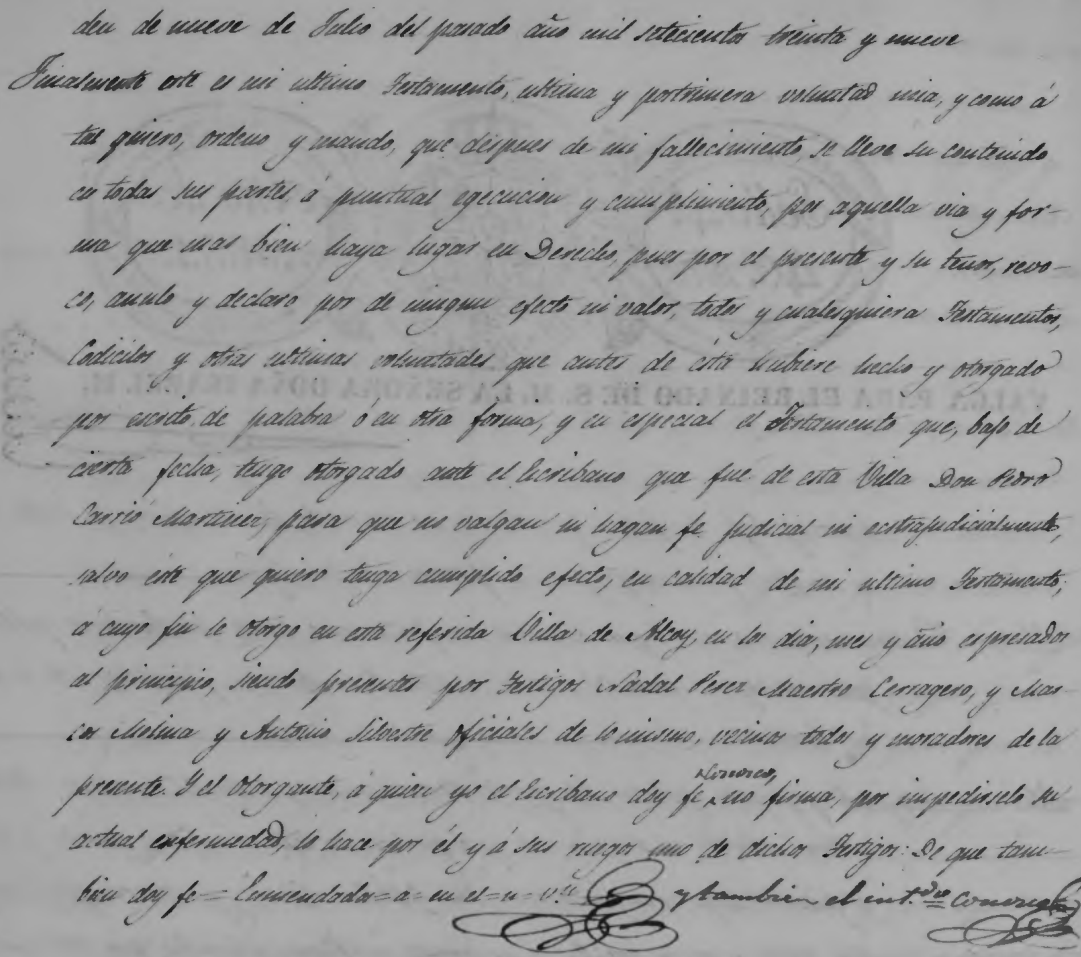 den de nueve de Julio del pasado año mil setecientos treinta y nueve
Finalmente este es mi ultimo Testamento, ultima y postrimera voluntad mia, y como á
tal quiero, ordeno y mando, que despues de mi fallecimiento, se lleve su contenido
en todas sus partes á puntual egecucion y cumplimiento, por aquella via y for-
ma que mas bien haya lugar en Derecho, pues por el presente y su tenor, revo-
co, anulo y declaro por de ningun efecto ni valor, todos y cualesquiera Testamentos,
Codicilos y otras ultimas voluntades que antes de esta hubiere hecho y otorgado
por escrito, de palabra ó en otra forma, y en especial el Testamento que, bajo de
cierta fecha, tengo otorgado ante el Escribano que fue de esta Villa Don Pedro
Carrió Martinez, para que no valgan ni hagan fe judicial ni extrajudicialmente,
salvo este que quiero tenga cumplido efecto, en calidad de mi ultimo Testamento;
á cuyo fin le otorgo en esta referida Villa de Alcoy, en los dia, mes y año espresados
al principio, siendo presentes por Testigos Nadal Perez Maestro Cerragero, y Mar-
cos Molina y Antonio Silvestre oficiales de lo mismo, vecinos todos y moradores de la
presente. Y el otorgante, á quien yo el Escribano doy fe conozco, no firma, por impedirselo su
actual enfermedad, lo hace por él y á sus ruegos uno de dichos Testigos: De que tam-
bien doy fe = Enmendados = a = en el = n = y tambien el int.do conozco
VALGA PARA EL REINADO DE S. M. LA SEÑORA DOÑA ISABEL II.